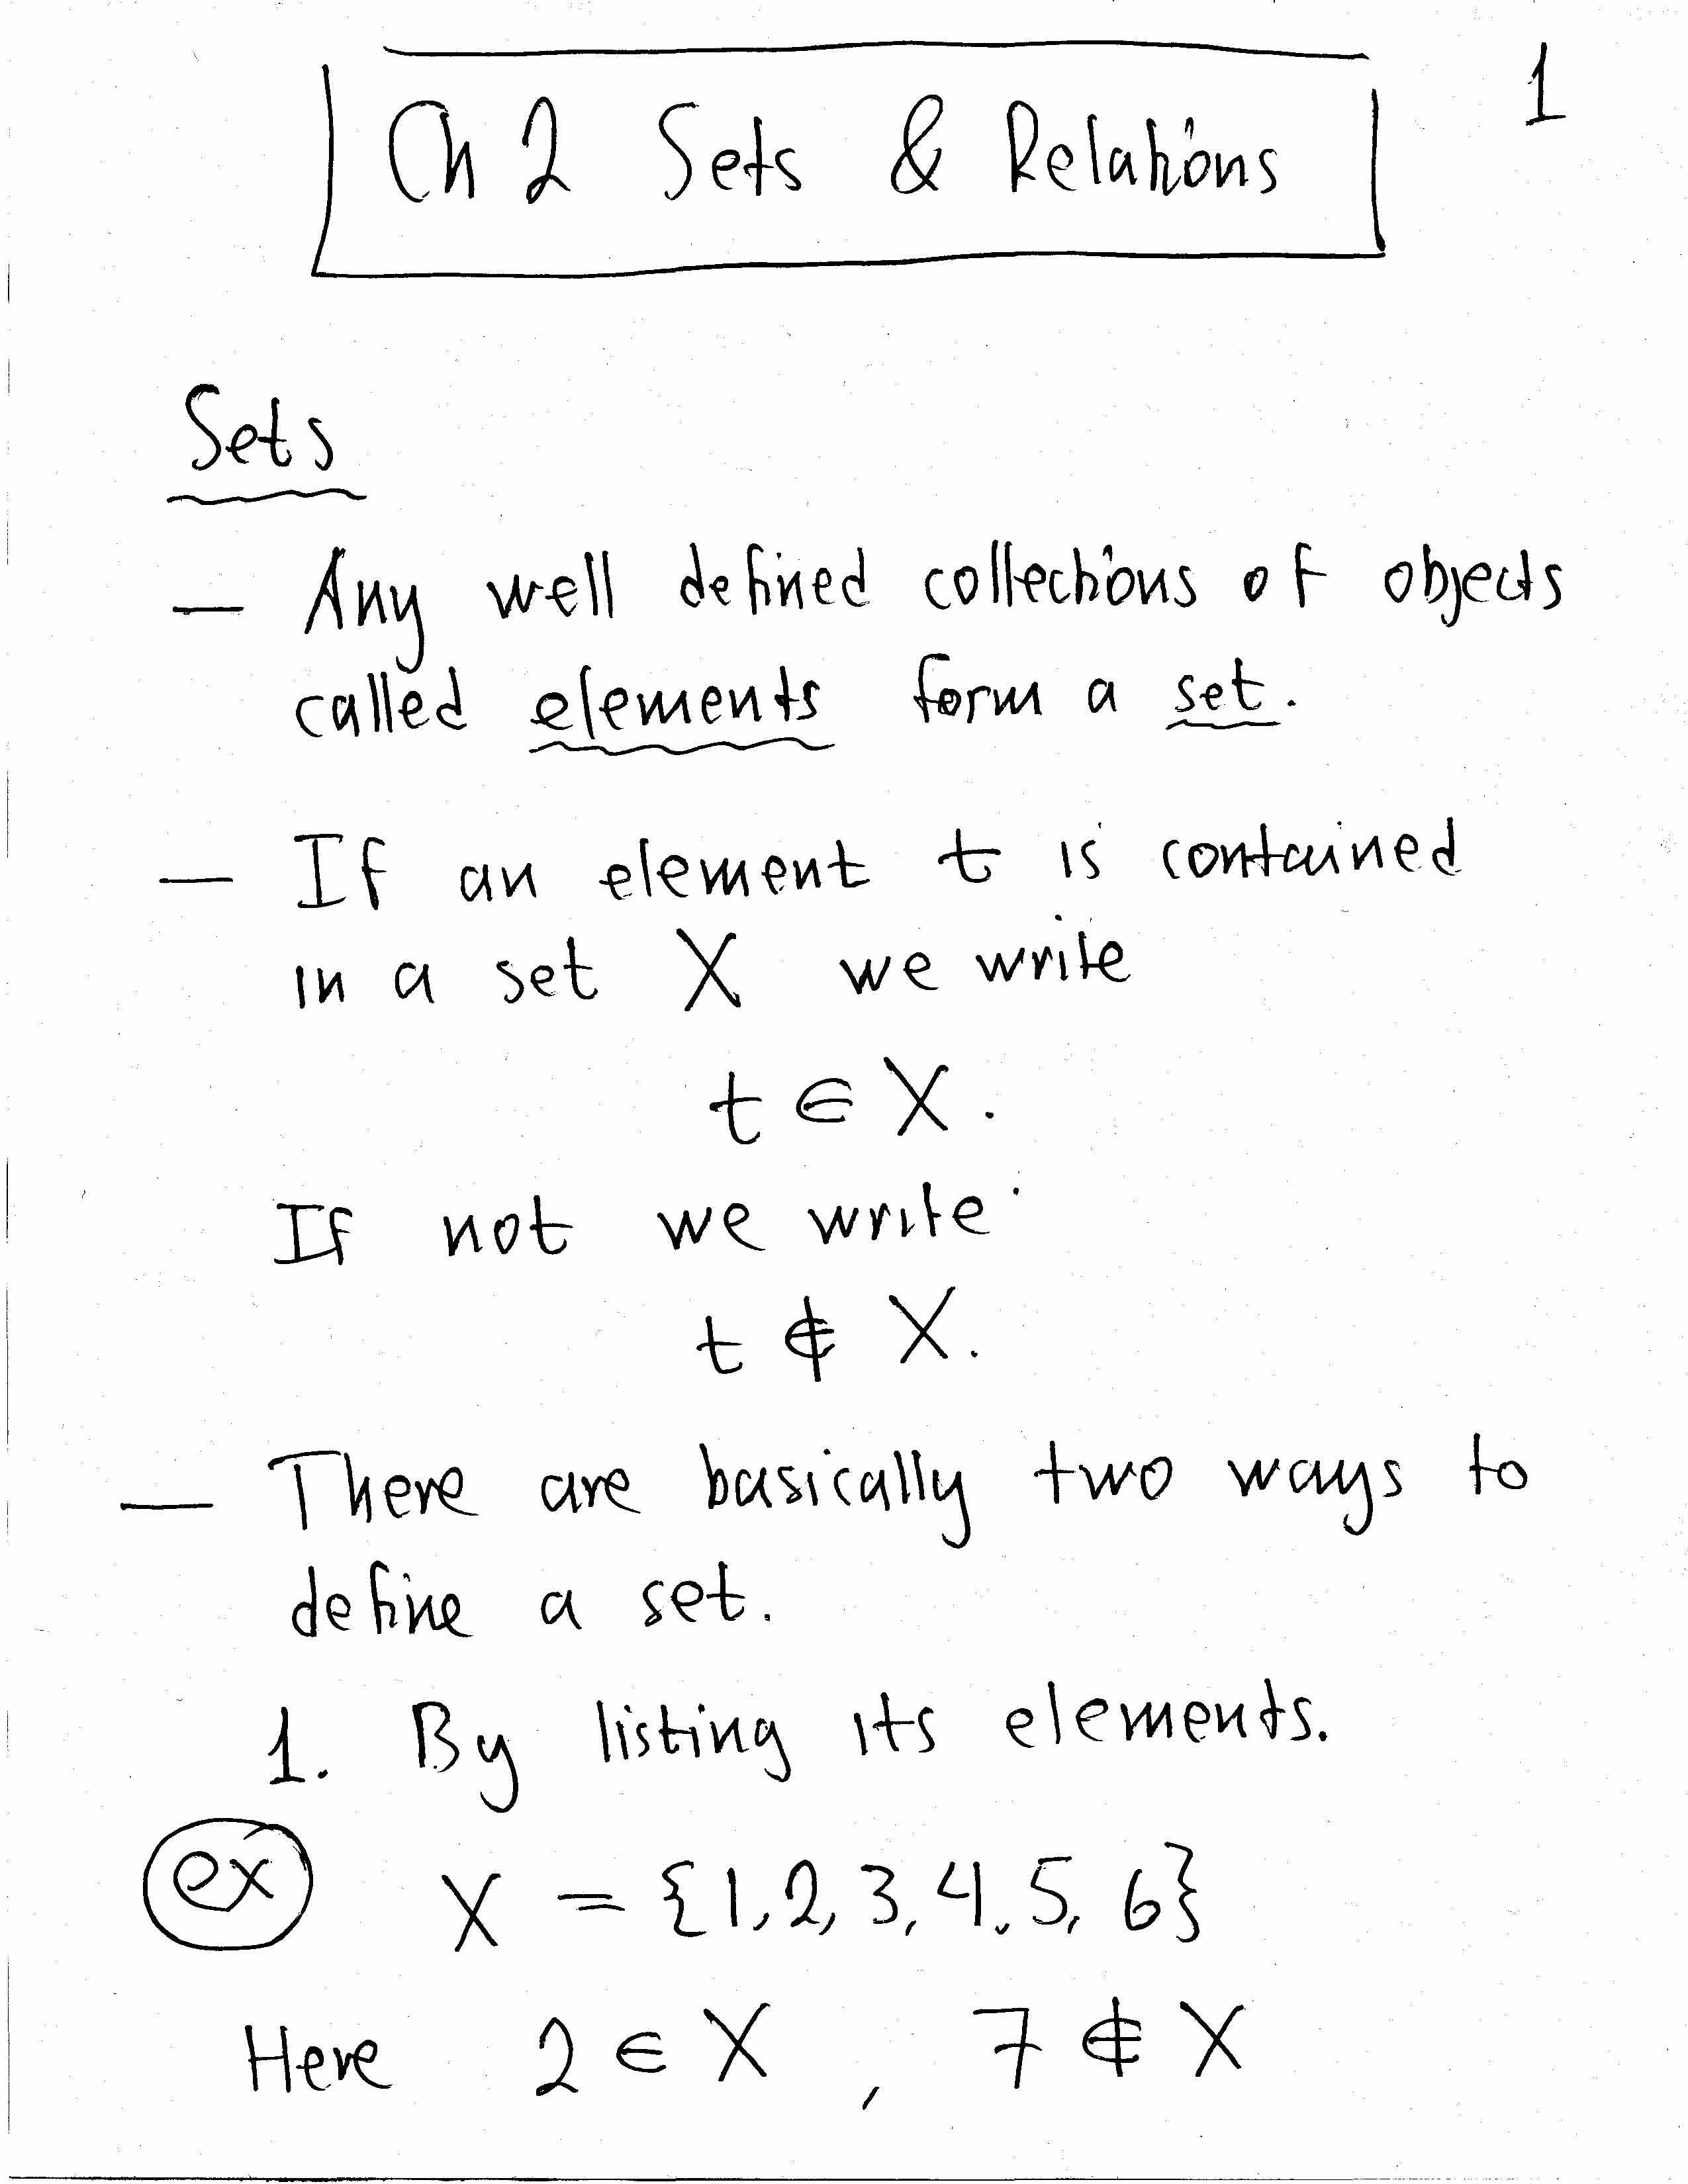 1
Ch 2 Sets & Relations
Sets
— Any well defined collections of objects
called elements form a set.
— If an element t is contained
in a set X we write
t ∈ X.
If not we write
t ∉ X.
— There are basically two ways to
define a set.
1. By listing its elements.
ex X = {1, 2, 3, 4, 5, 6}
Here 2 ∈ X , 7 ∉ X